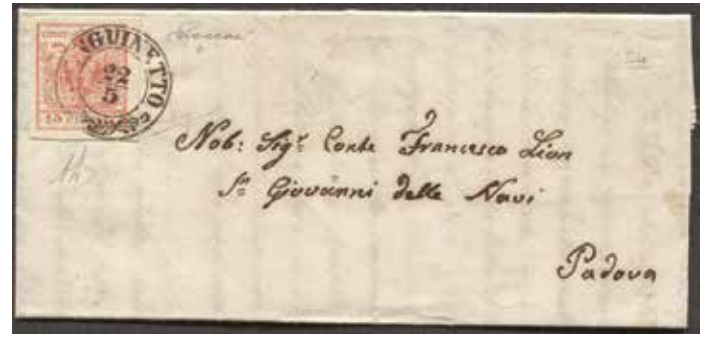 GUINETTO
22
5
Nob: Sigr Conte Francesco Lion
Sn Giovanni delle Navi
Padova